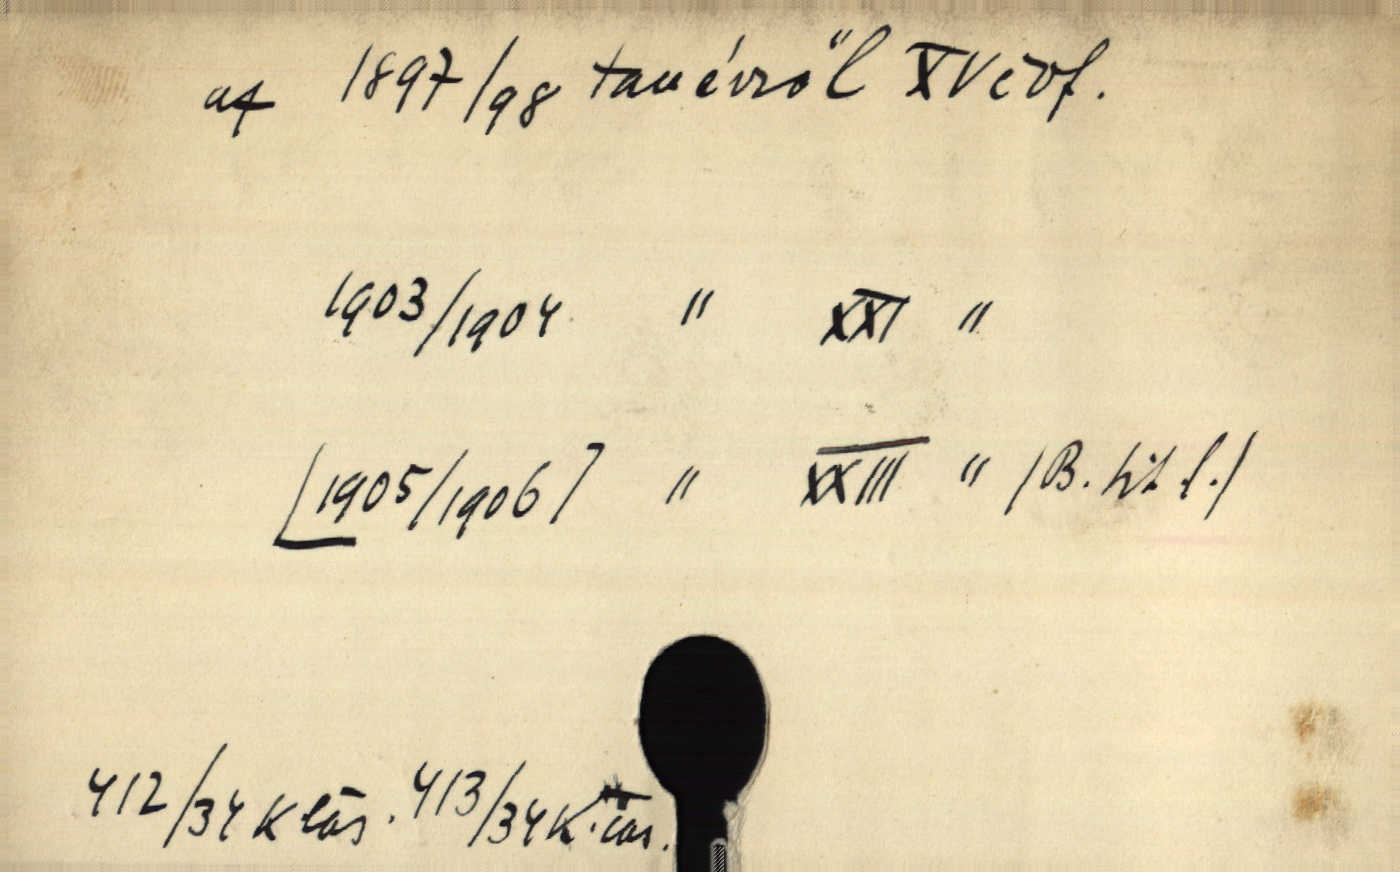 az 1897/98 tanévről XV évf.
1903/1904 " XXI "
[1905/1906] " XXIII " /B. hit l./
412/34 K 413/34 K.